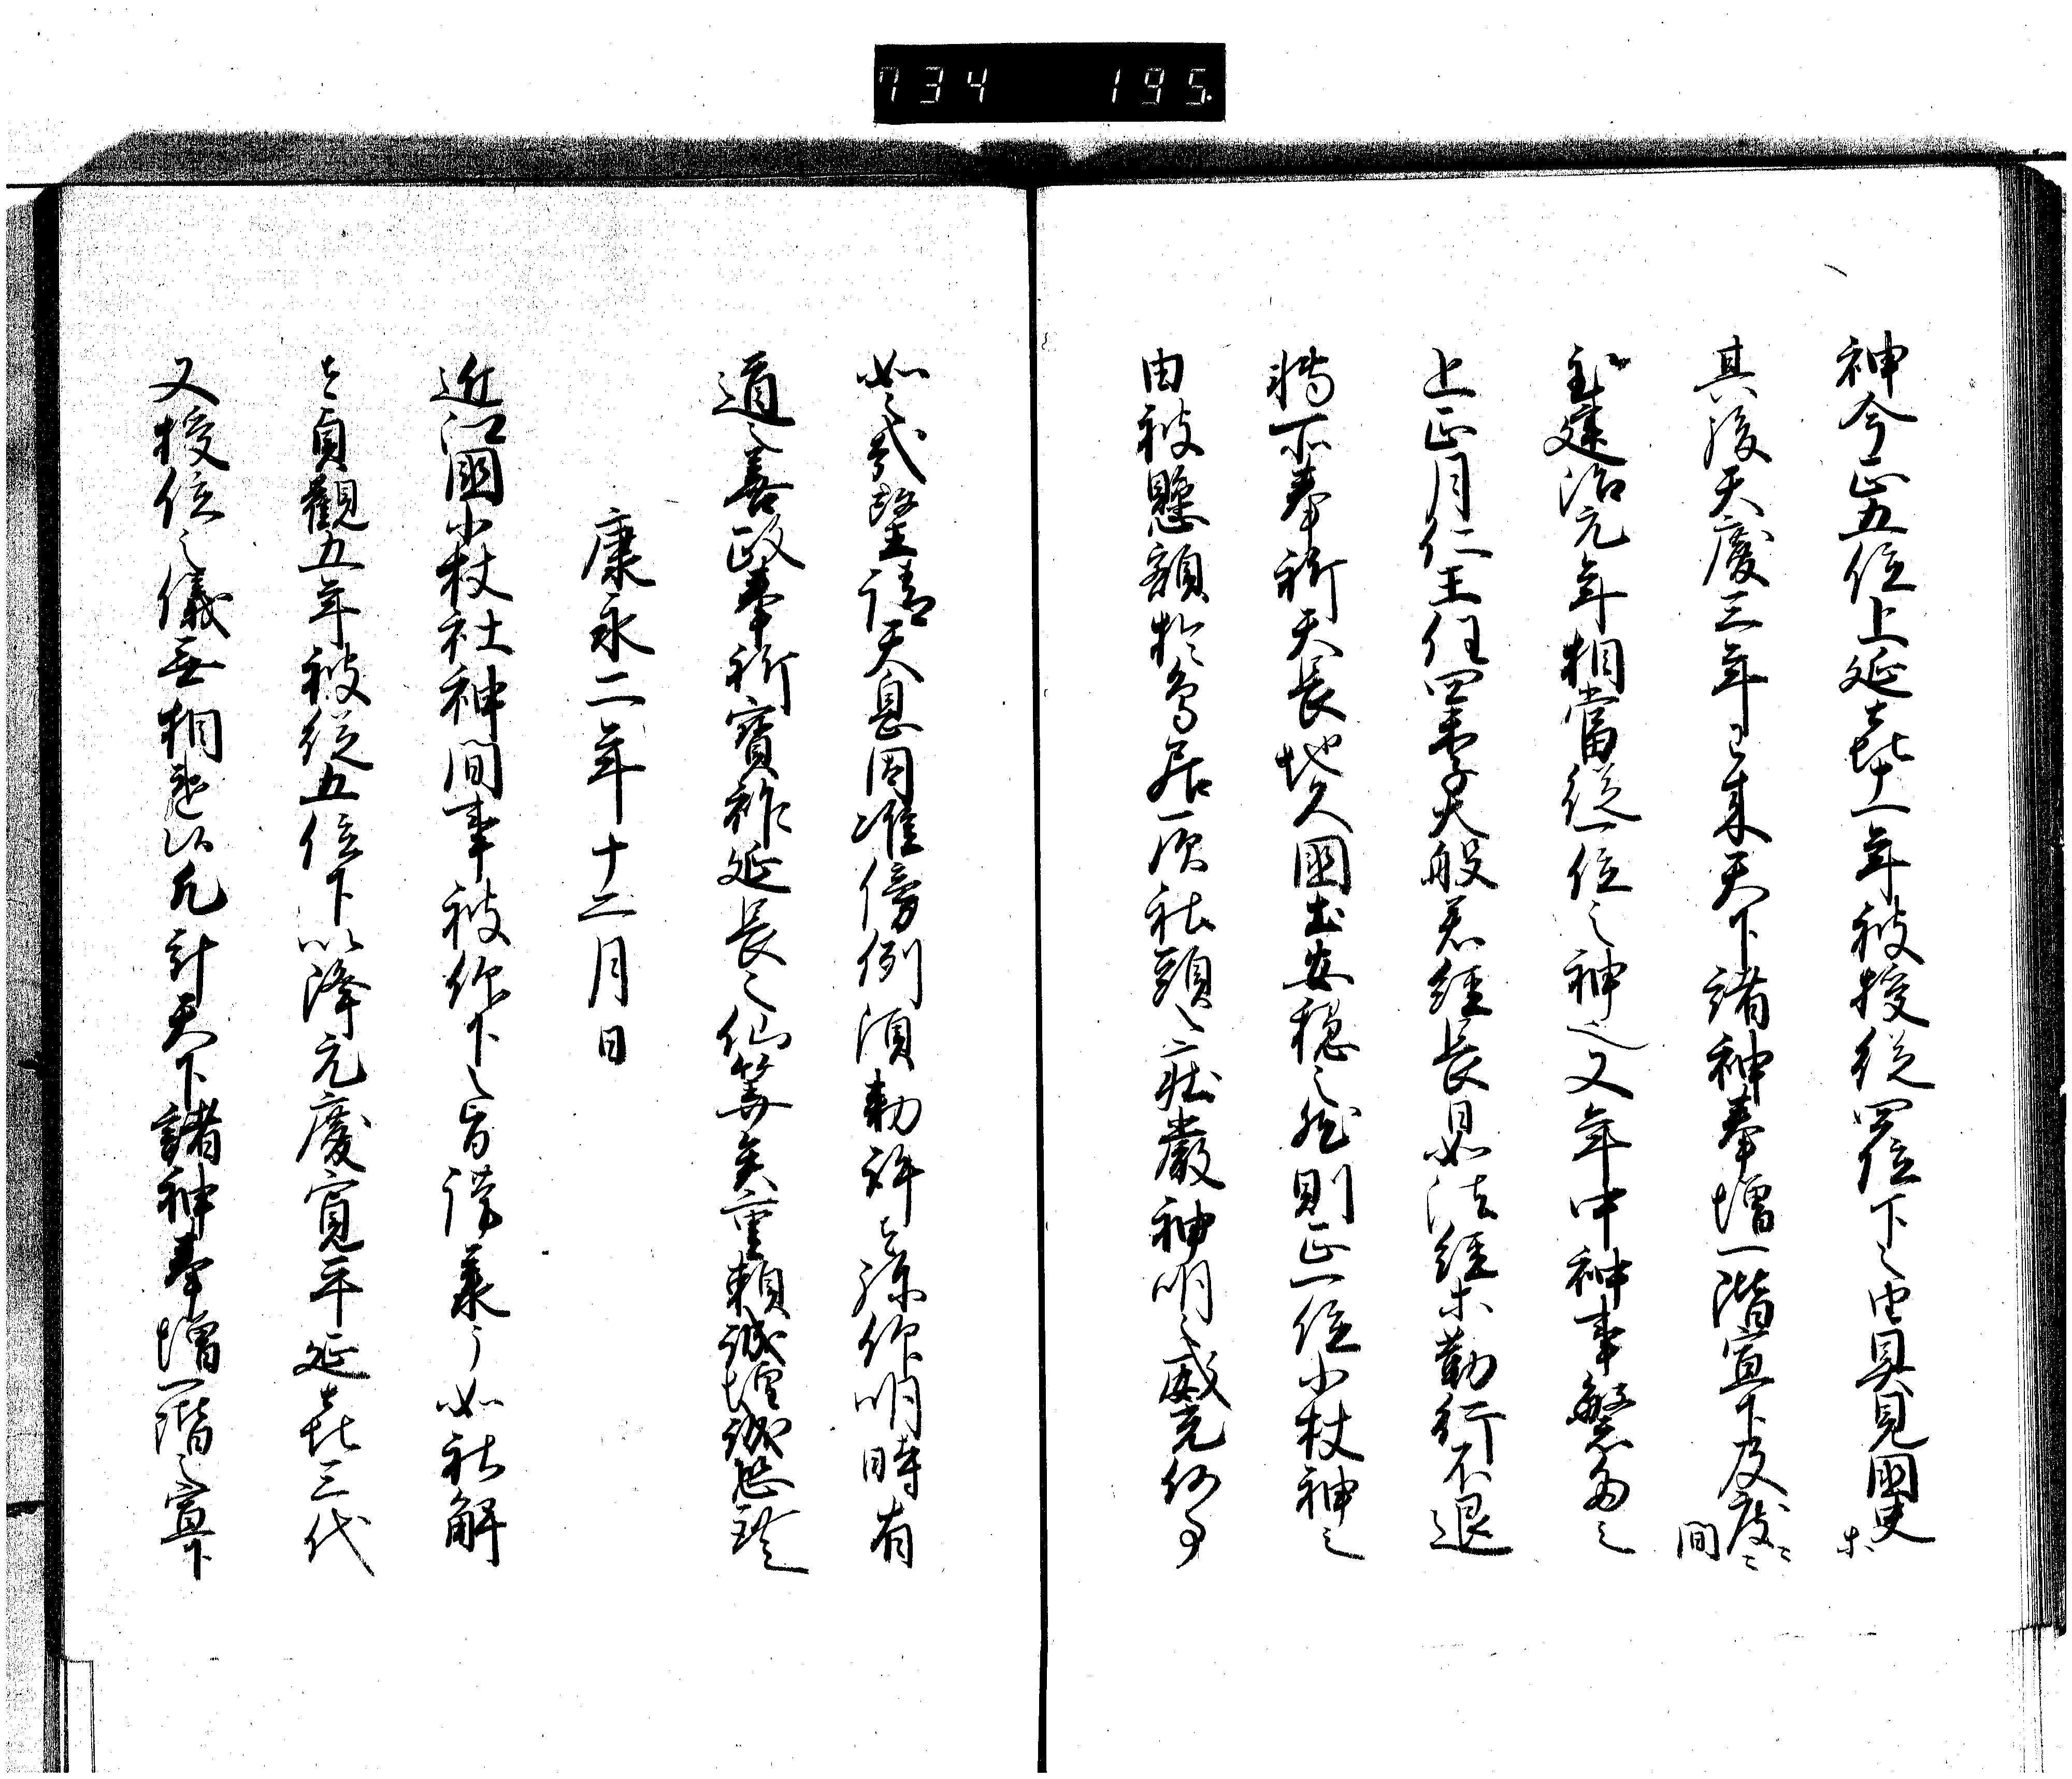 734 195.
神今正五位上延喜十一年被授従四位下之由具見国史ホ
其後天慶三年已来天下諸神奉増一階宣下及度々間
到建治元年相当従一位之神也又年中神事繁多之
上正月仁王経四季大般若経長日如法経ホ勤行不退
将所奉祈天長地久国土安穏之然則正一位小杖神之
由被懸額於鳥居一須社頭之荘厳神明之威光何事
如之哉望請天恩因准傍例須勅許者弥仰明時有
道之善政奉祈宝祚延長之仙算矣重頼誠惶誠恐謹言
康永二年十二月日
近江国小杖社神間事被仰下之旨謹承了如社解
者貞観五年被従五位下以降元慶寛平延喜三代
又授位之儀無相違以凡計天下諸神奉増一階之宣下